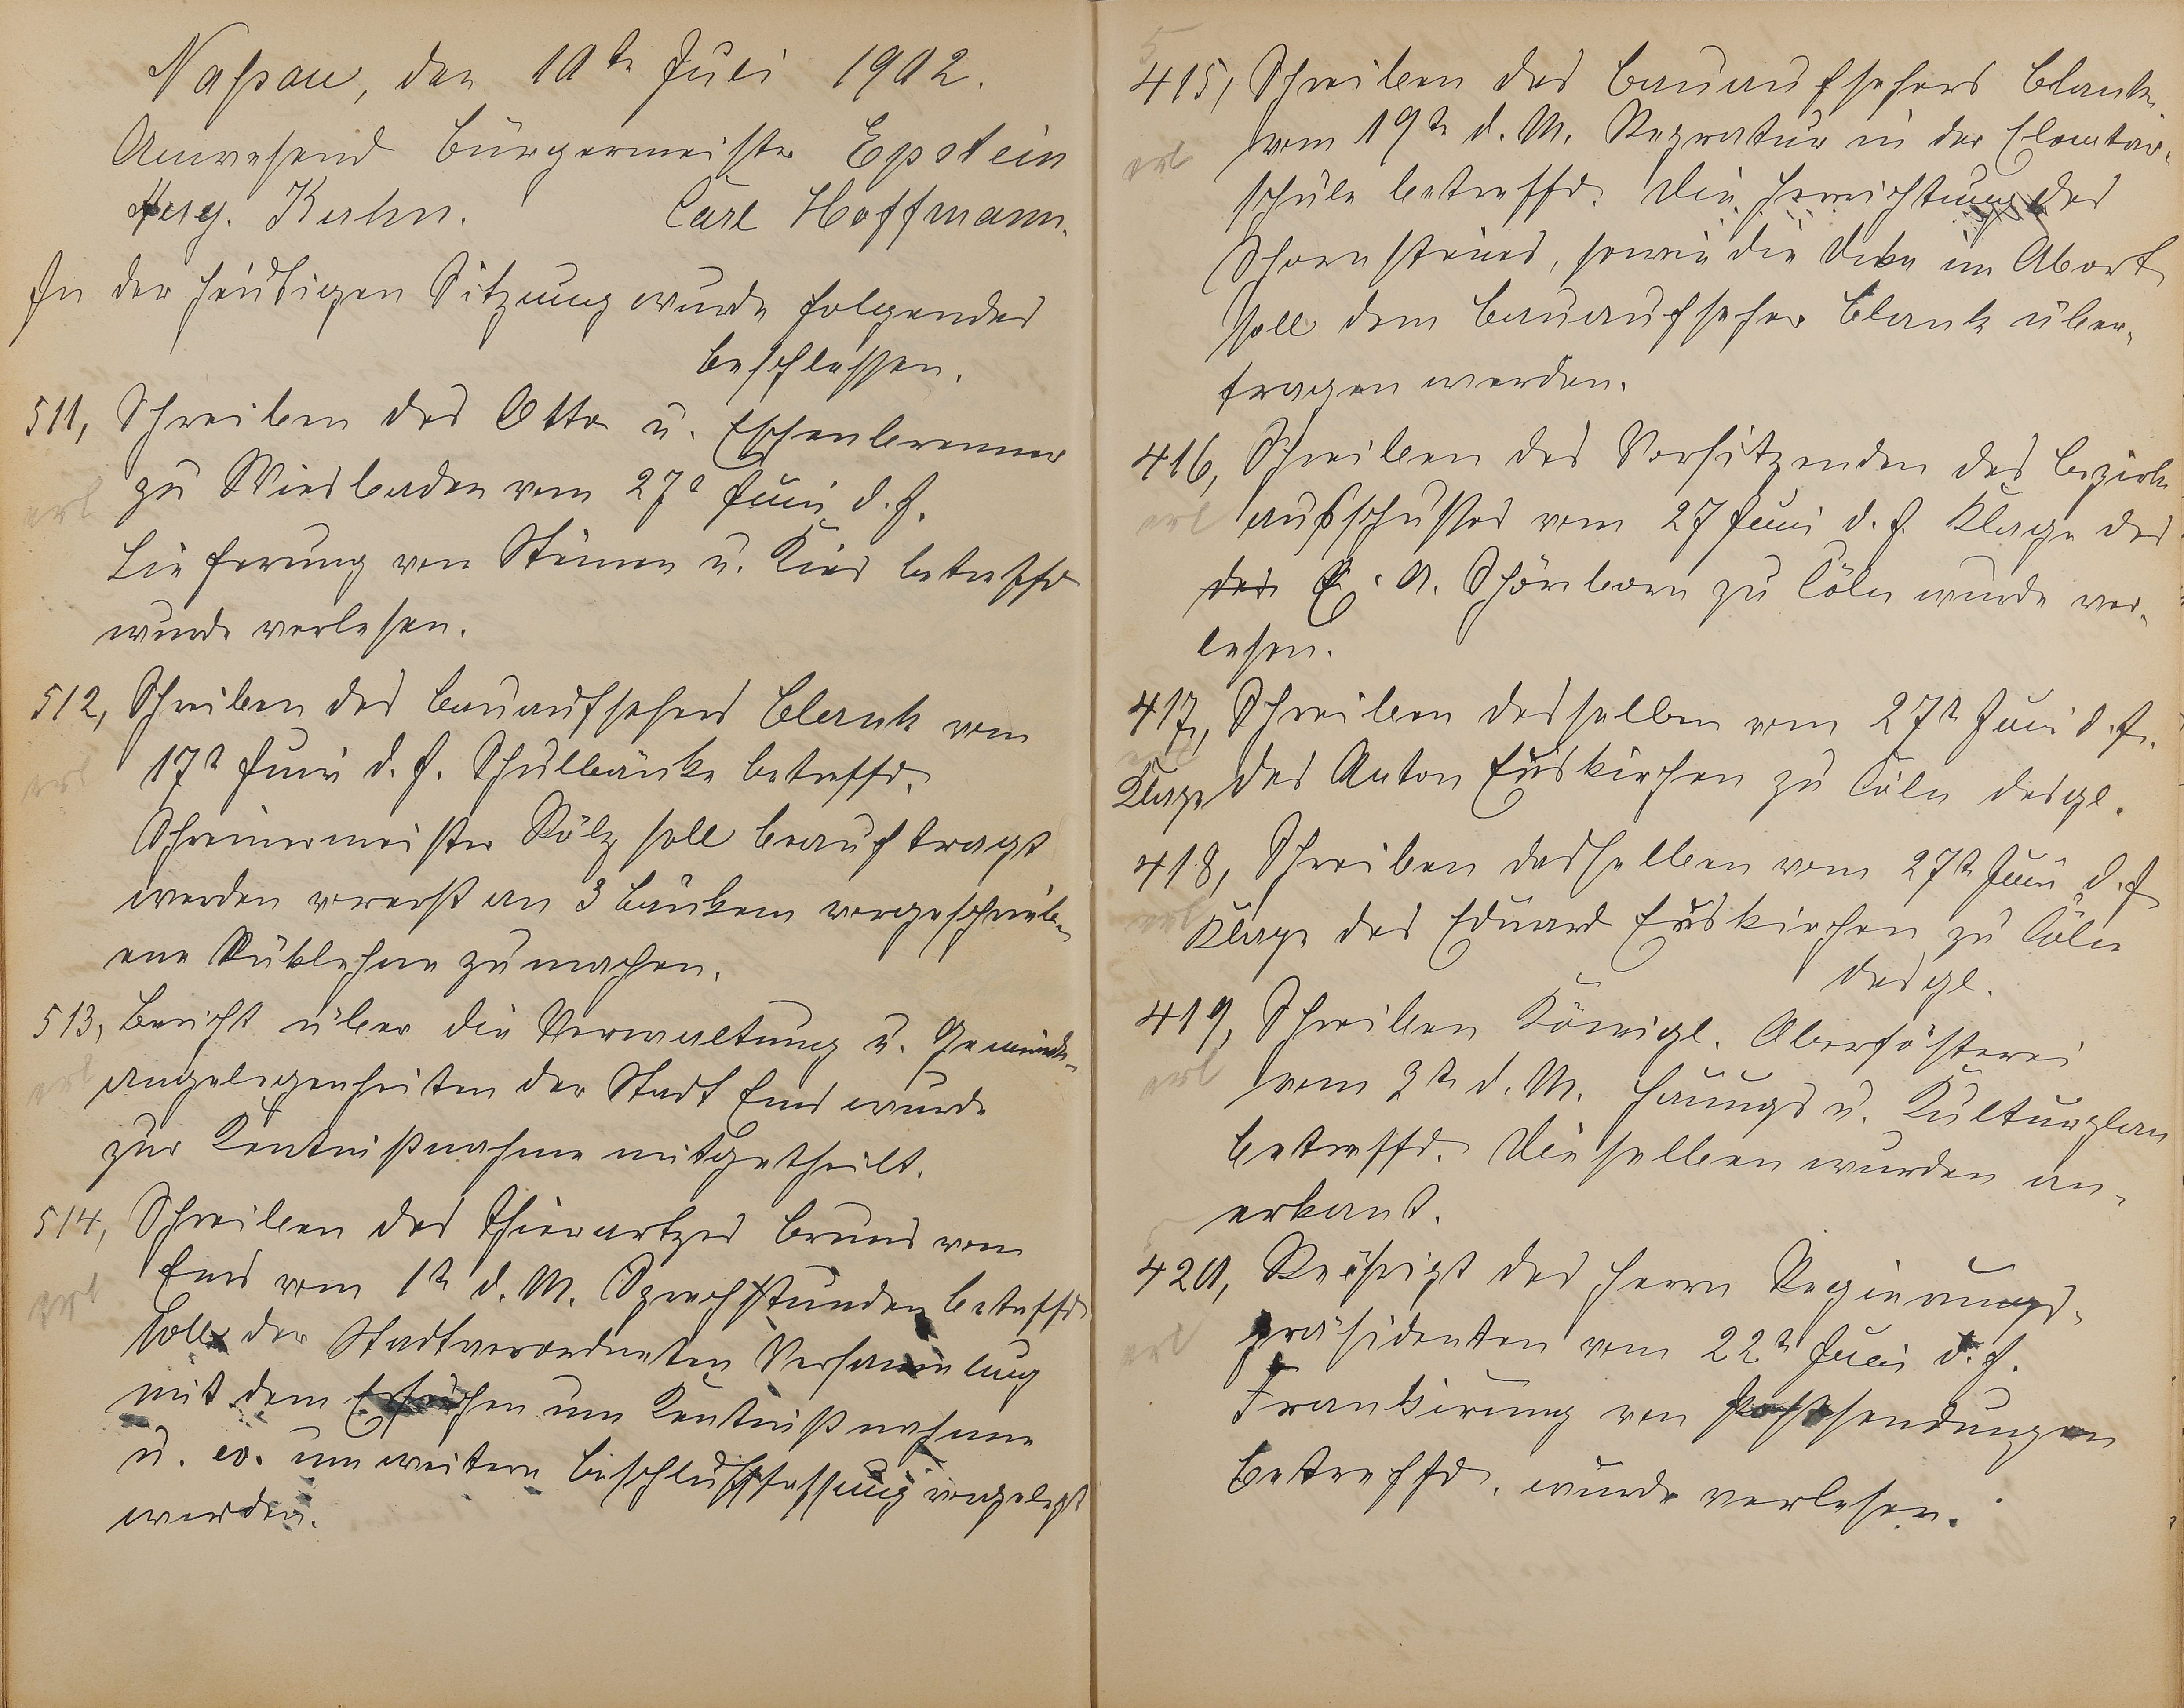 Nassau, den 10te Juli 1902.
Anwesend Bürgermeister Epstein
Aug. Kuhn. Carl Hoffmann.
In der heutigen Sitzung wurde folgendes
beschlossen.
511, Schreiben des Otto u. Eschenbrenner
erl zu Wiesbaden vom 27t Juni d. J.
Lieferung von Steinen u. Kies betreffd
wurde verlesen.
512, Schreiben des Bauaufsehers Blank vom
erl 17t Juni d. J. Schulbänke betreffd.
Schreinermeister Bölz soll beauftragt
werden vorerst an 3 Bänken vorgeschrieb-
ene Rüklehne zu machen.
513, Bericht über die Verwaltung u. Gemeinde-
erl angelegenheiten der Stadt Ems wurde
zur Kentnißnahme mitgetheilt.
514, Schreiben des Thierartzes Bruns von
erl Ems vom 1t d. M. Sprechstunden betreffd
soll der Stadtverordneten Versammlung
mit dem Ersuchen um Kentnißnahme
u. ev. um weitere Beschlußfassung vorgelegt
werden.
5
415, Schreiben des Bauaufsehers Blank
erl vom 19te d. M. Repratur in der Elemtar-
schule betreffd. Die Herrichtung des
Schornsteines, sowie die Deke im Abort
soll dem Bauaufseher Blank über-
tragen werden.
416, Schreiben des Vorsitzenden des Bezirks
erl ausschusses vom 27 Juni d. J. Klage des
des E. A. Schönborn zu Cöln wurde ver-
lesen.
417, Schreiben desselben vom 27t Juni d. J.
erl
Klage des Anton Euskirchen zu Cöln desgl.
418, Schreiben desselben vom 27t Juni d. J
erl Klage des Eduard Euskirchen zu Cöln
desgl.
419, Schreiben Königl. Oberfösterei
erl vom 3t d. M. Hauungs u. Kulturplan
betreffd. Dieselben wurden an-
erkant.
5
420, des Herrn Regierungs-
erl präsidenten vom 22t Juni d. J.
Frankirung von Postsendungen
betreffd. wurde verlesen.